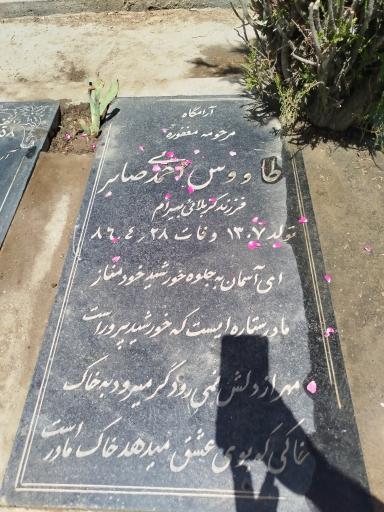 آرامگاه
مرحومه مغفوره
طاووس احمدی صابر
فرزند کربلائی بیرام
تولد ۱۳۰۷ وفات ۸۶٫۴٫۲۸
ای آسمان به جلوه خورشید خود مناز
مادر ستاره ایست که خورشید پرور است
مهر از دلش نمی رود گر میرود به خاک
خاکی که بوی عشق میدهد خاک مادر است